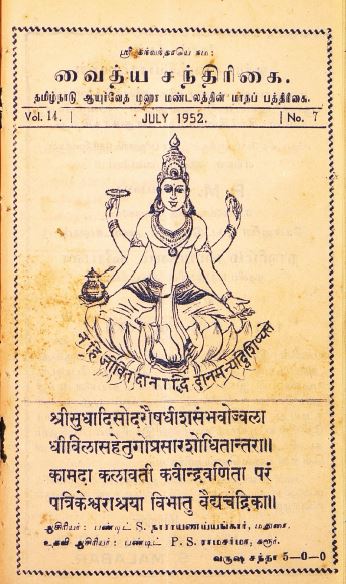 ஸ்ரீ தன்வந்தரயே நம:
வைத்ய சந்திரிகை.
தமிழ்நாடு ஆயுர்வேத மஹா மண்டலத்தின் மாதப் பத்திரிகை.
Vol. 14. | JULY 1952. | No. 7
न हि जीवित दानाद्धि दानमन्यद्विशिष्यते
श्रीसुधादिसोदरौषधीशसंभवोज्वला
धीविलासहेतुगोप्रसारशोभितान्तरा॥
कामदा कलावती कवीन्द्रवर्णिता परं
पात्रिकेश्वराश्रया विभातु वैद्यचंद्रिका॥
ஆசிரியர்: பண்டிட் S. நாராயணய்யங்கார், மதுரை.
உதவி ஆசிரியர்: பண்டிட் P. S. ராமசர்மா, கரூர்.
வருஷ சந்தா 5-0-0